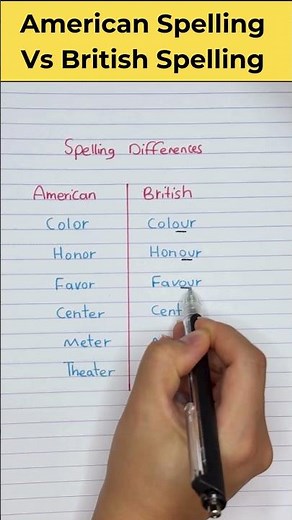 American Spelling
Vs British Spelling
Spelling Differences
American British
Color Colour
Honor Honour
Favor Favour
Center
Meter
Theater